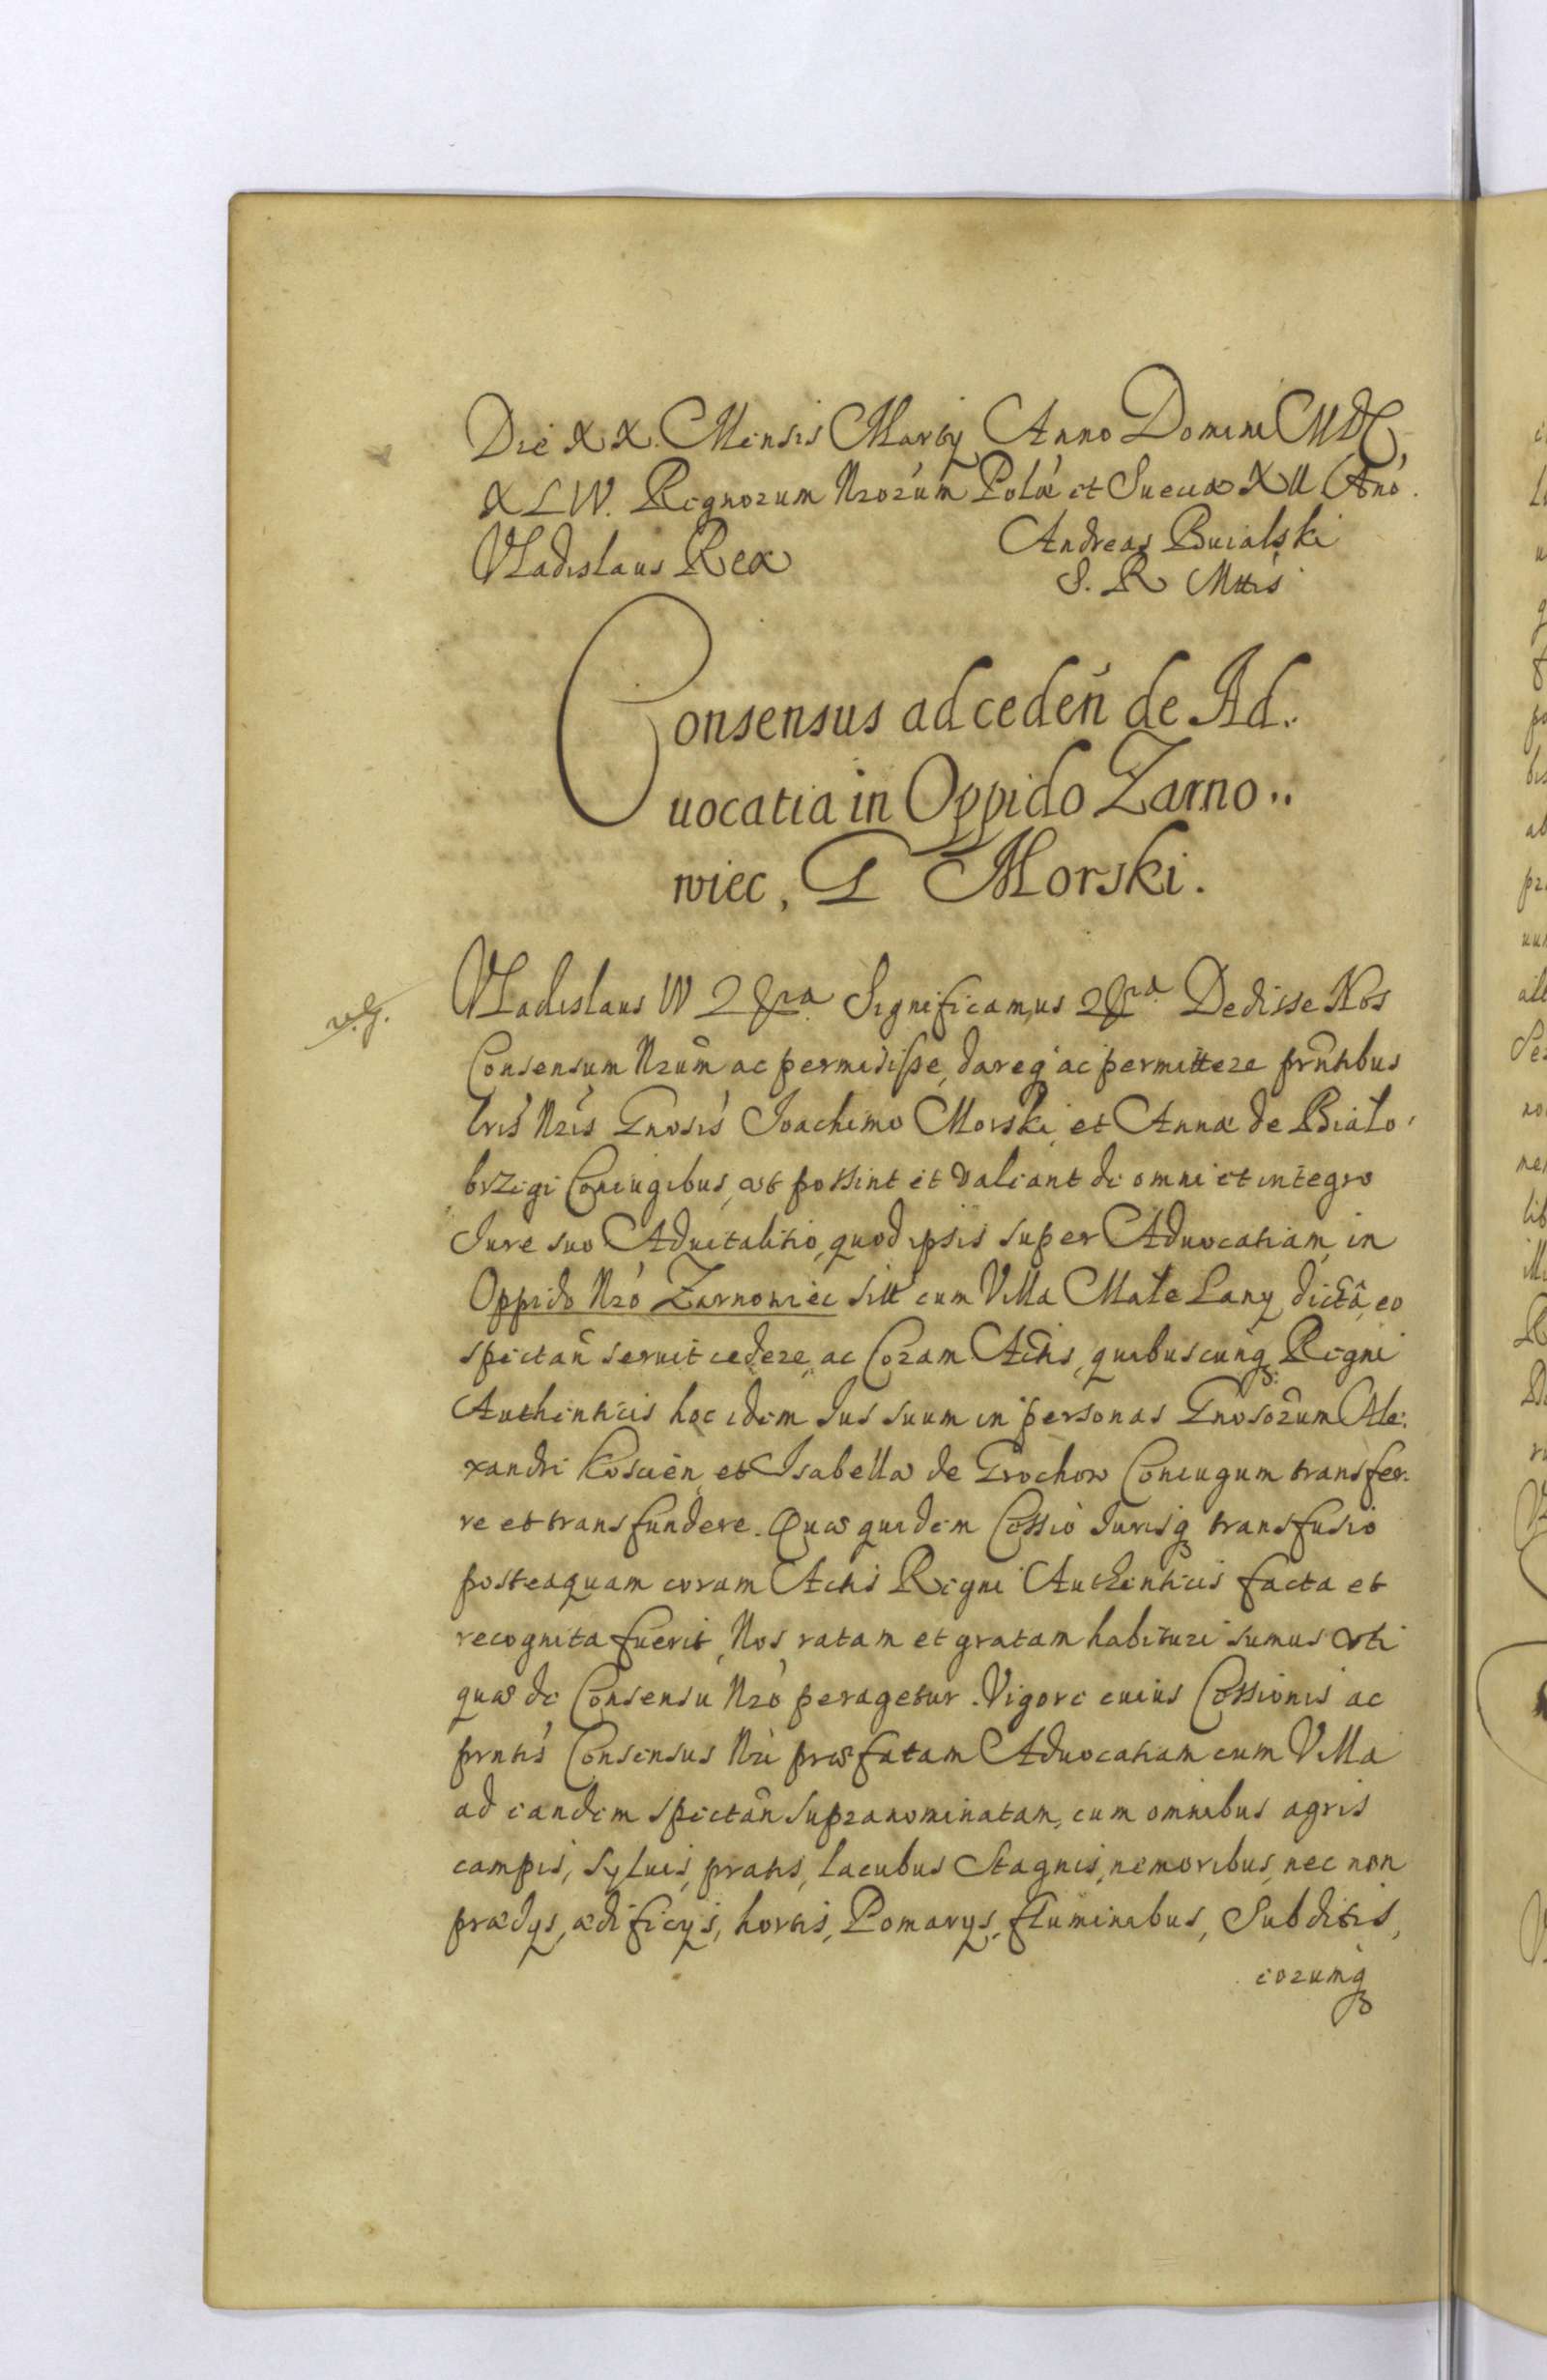 Die XX. Mensis Martÿ Anno Domini MDC,
XLIV. Regnorum Nrorum Polae et Sueciae XII Ano.
Vladislaus Rex Andreas Buialski
S. R Mttis
Consensus ad ceden de Ad..
uocatia in Oppido Zarno..
wiec, G Morski.
Vladislaus IV Significamus Dedisse Nos
Consensum Nrum ac permisisse, dareq ac permittere prntibus
lris Nris Gnosis Joachimo Morski et Annae de Biało
brzegi Coniugibus, ut possint et valeant de omni et integro
Jure suo Aduitalitio, quod ipsis super Aduocatiam in
Oppido Nro Zarnowiec sitt cum Villa Małe Lany dictâ, eo
spectan seruit cedere, ac Coram Actis, quibuscunq Regni
Authenticis hoc idem Jus suum in personas Gnosorum Ale:
xandri Koscien et Isabellae de Grochow Coniugum transfer:
re et transfundere. Quae quidem Cessio Jurisq transfusio
posteaquam coram Actis Regni Authenticis facta et
recognita fuerit, Nos ratam et gratam habituri sumus uti
quae de Consensu Nro peragetur. Vigore cuius Cessionis ac
prntis Consensus Nri praefatam Aduocatiam cum Villa
ad eandem spectan supranominatam, cum omnibus agris
campis, syluis, pratis, lacubus Stagnis, nemoribus, nec non
praedÿs, aedificÿs, hortis, Pomarÿs, fluminibus, Subditis,
eorumq